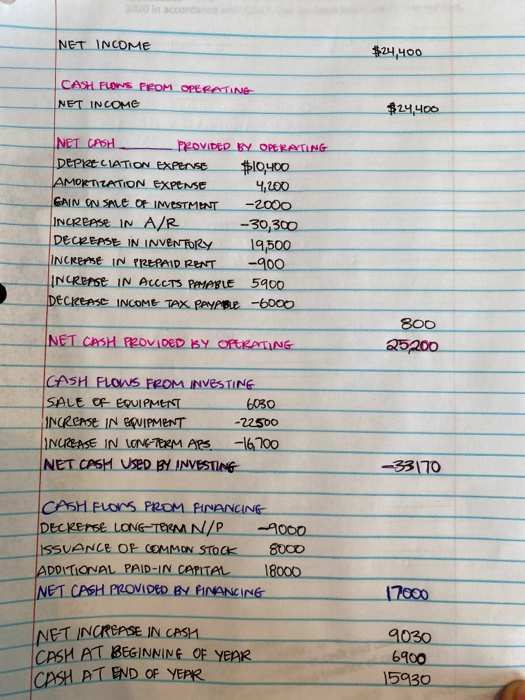 2020 in accordance
NET INCOME $24,400
CASH FLOWS FROM OPERATING
NET INCOME $24,400
NET CASH ______ PROVIDED BY OPERATING
DEPRECIATION EXPENSE $10,400
AMORTIZATION EXPENSE 4,200
GAIN ON SALE OF INVESTMENT -2000
INCREASE IN A/R -30,300
DECREASE IN INVENTORY 19,500
INCREASE IN PREPAID RENT -900
INCREASE IN ACCCTS PAYABLE 5900
DECREASE INCOME TAX PAYABLE -6000
800
NET CASH PROVIDED BY OPERATING 25,200
CASH FLOWS FROM INVESTING
SALE OF EQUIPMENT 6030
INCREASE IN EQUIPMENT -22500
INCREASE IN LONG-TERM APS -16,700
NET CASH USED BY INVESTING -33170
CASH FLOWS FROM FINANCING
DECREASE LONG-TERM N/P -9000
ISSUANCE OF COMMON STOCK 8000
ADDITIONAL PAID-IN CAPITAL 18000
NET CASH PROVIDED BY FINANCING 17000
NET INCREASE IN CASH 9030
CASH AT BEGINNING OF YEAR 6900
CASH AT END OF YEAR 15930